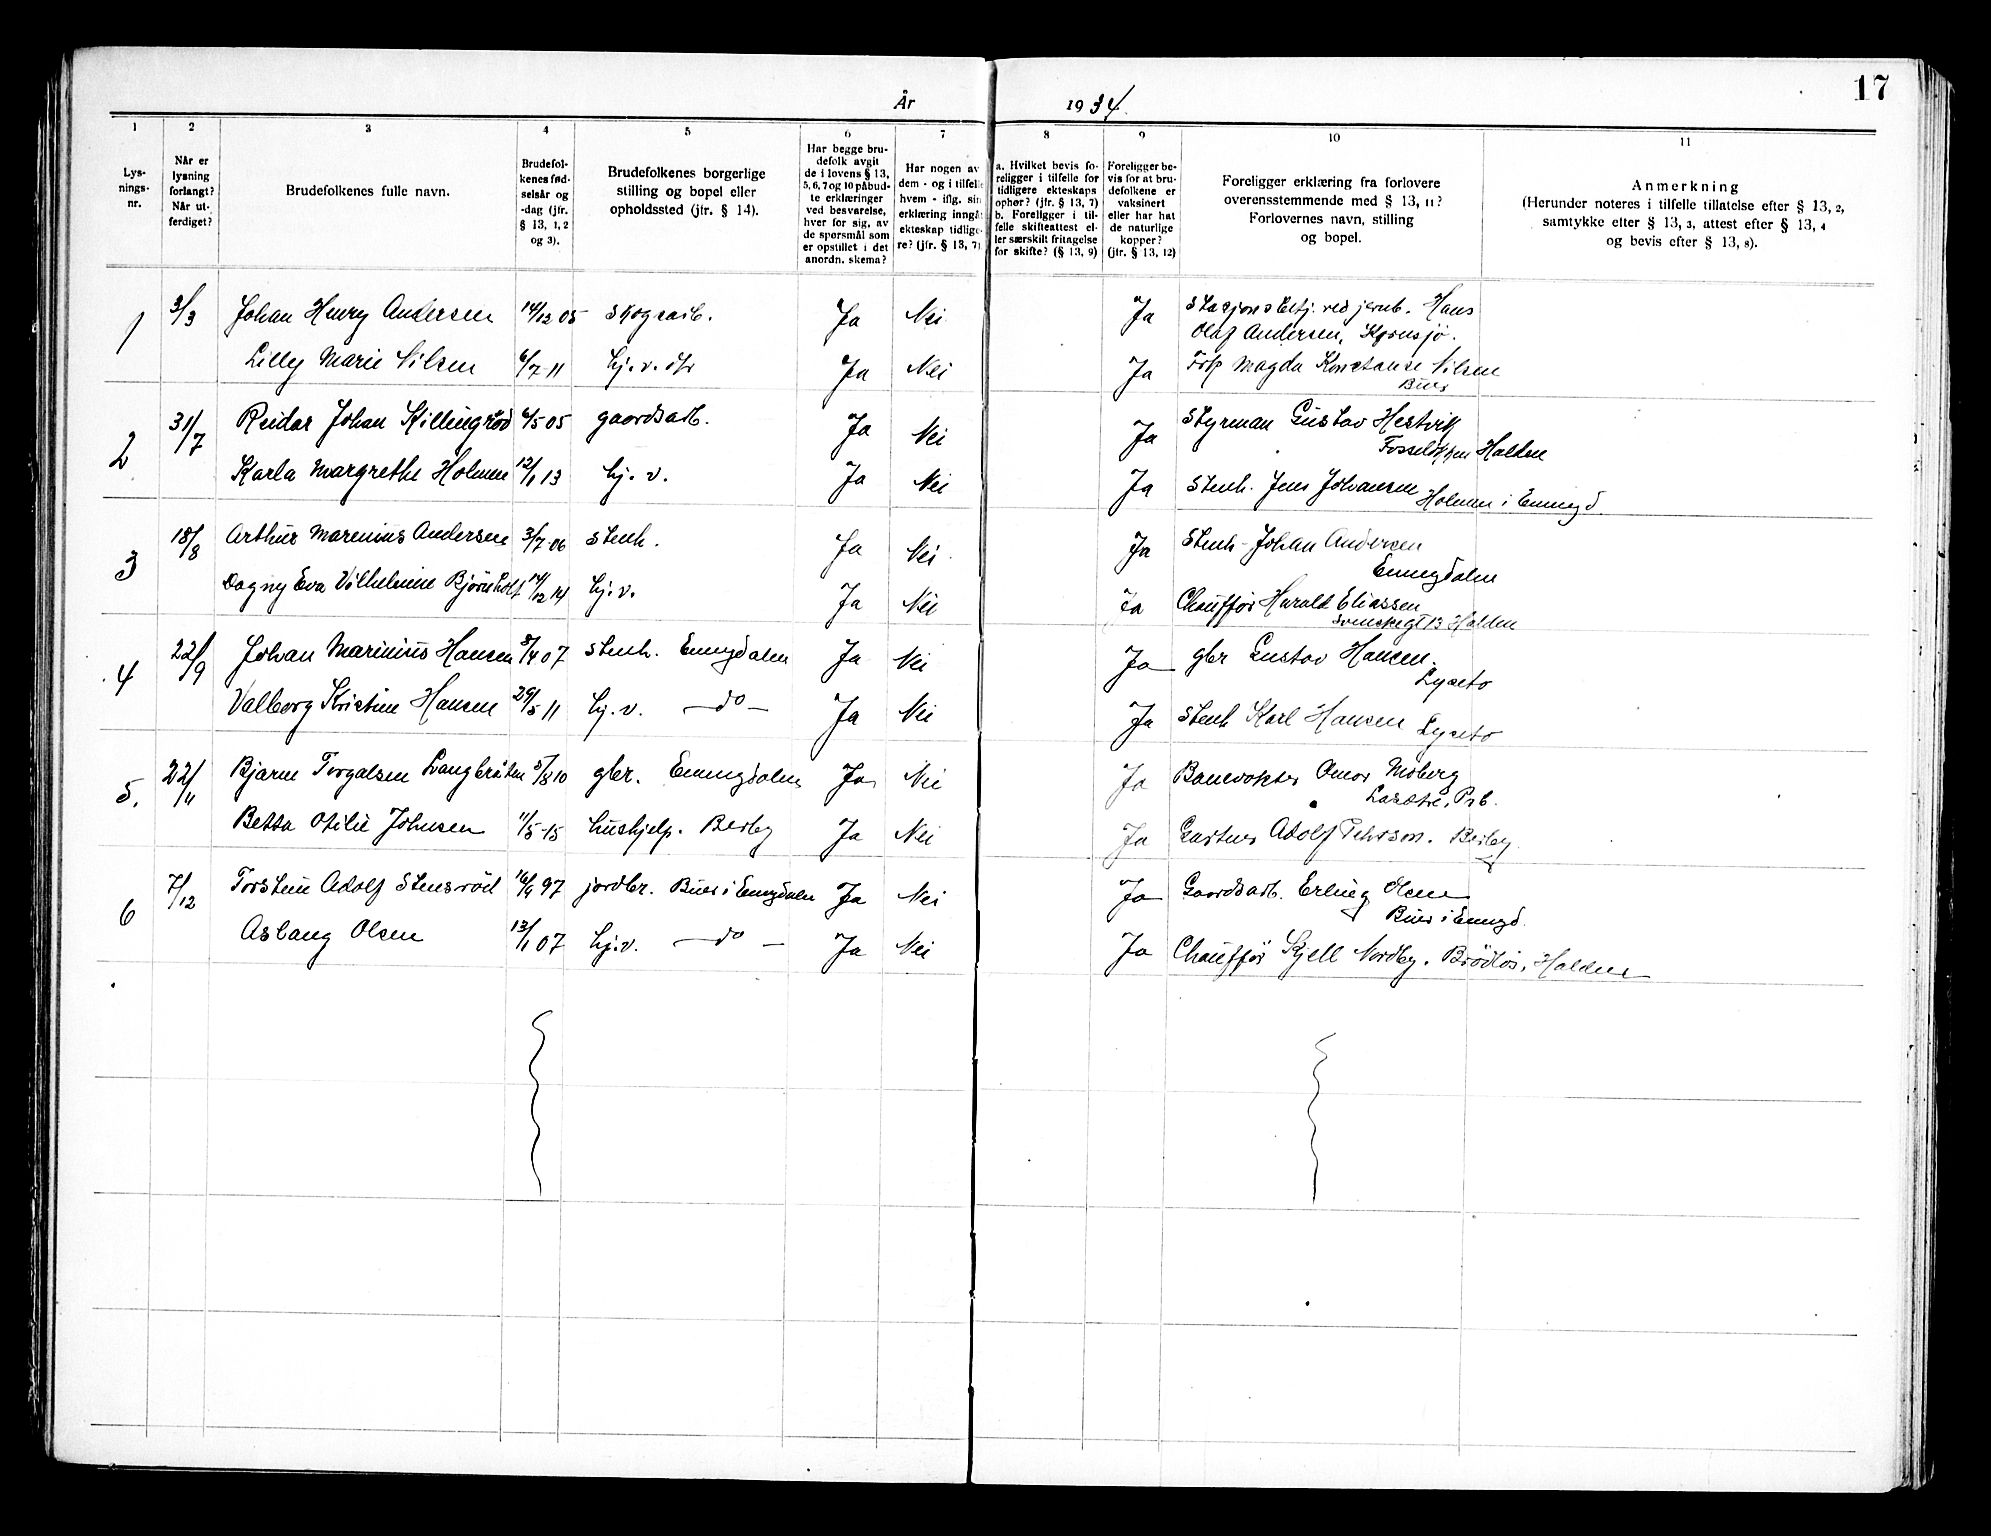 17
År 1934.
1 2 3 4 5 6 7 8 9 10 11
Lys-
nings-
nr.
Når er
lysning
forlangt?
Når ut-
ferdiget?
Brudefolkenes fulle navn.
Brudefol-
kenes fød-
selsår og
-dag (jfr.
§ 13, 1, 2
og 3).
Brudefolkenes borgerlige
stilling og bopel eller
opholdssted (jfr. § 14).
Har begge bru-
defolk avgit
de i lovens § 13,
5, 6, 7 og 10 påbud-
te erklæringer
ved besvarelse,
hver for sig, av
de spørsmål som
er opstillet i det
anordn. skema?
Har nogen av
dem - og i tilfelle
hvem - iflg. sin
erklæring inngåt
ekteskap tidlige-
re? (jfr. § 13, 7)
a. Hvilket bevis fo-
religger i tilfelle for
tidligere ekteskaps
ophør? (jfr. § 13, 7)
b. Foreligger i til-
felle skifteattest el-
ler særskilt fritagelse
for skifte? (§ 13, 9)
Foreligger be-
vis for at bru-
defolkene er
vaksinert
eller har hat
de naturlige
kopper?
(jfr. § 13, 12)
Foreligger erklæring fra forlovere
overensstemmende med § 13, 11?
Forlovernes navn, stilling
og bopel.
Anmerkning
(Herunder noteres i tilfelle tillatelse efter § 13, 2,
samtykke efter § 13, 3, attest efter § 13, 4
og bevis efter § 13, 8).
1 3/3 Johan Henry Andersen 14/12 05 skogsarb. Ja Nei Ja Stasjonsbetj. ved jernb. Hans
Olaf Andersen, Kornsjø.
Lilly Marie Nilsen 6/7 11 hj. v. Ja Nei Ja Frk Magda Konstanse Nilsen
Buer
2 31/7 Reidar Johan Killingrød 6/5 05 gaardsarb. Ja Nei Ja Styrman Gustav Hestvik
Halden
Karla Margrethe Holmen 12/1 13 hj. v. Ja Nei Ja Stenh. Jens Johansen Holmen i Enningd.
3 18/8 Arthur Marenius Andersen 3/7 06 stenh. Ja Nei Ja Stenh. Johan Andersen
Enningdalen
Dagny Eva Vilhelmine Bjørnholt 14/12 14 hj. v. Ja Nei Ja Chauffør Harald Eliassen
Svenskegt 13 Halden
4 22/9 Johan Marinius Hansen 8/4 07 stenh. Enningdalen Ja Nei Ja gbr Gustav Hansen.
Lyseto
Valborg Kristine Hansen 29/5 11 hj. v. — do — Ja Nei Ja Stenh Karl Hansen Lyseto
5. 22/11 Bjarne Torgalsen Langbråten 5/8 10 gbr. Enningdalen Ja Nei Ja Banevokter Omar Moberg
Prb.
Betsa Otilie Johnsen 11/5 15 hushjelp. Berby Ja Nei Ja Gartner Adolf Pehrson. Berby
6 7/12 Torstein Adolf Stensrød 16/9 97 jordbr. Buer i Enningdalen Ja Nei Ja Gaardsarb. Erling Olsen
Buer i Enningd.
Aslaug Olsen 13/1 07 hj. v. — do — Ja Nei Ja Chauffør Kjell Nordby. Brødløs, Halden